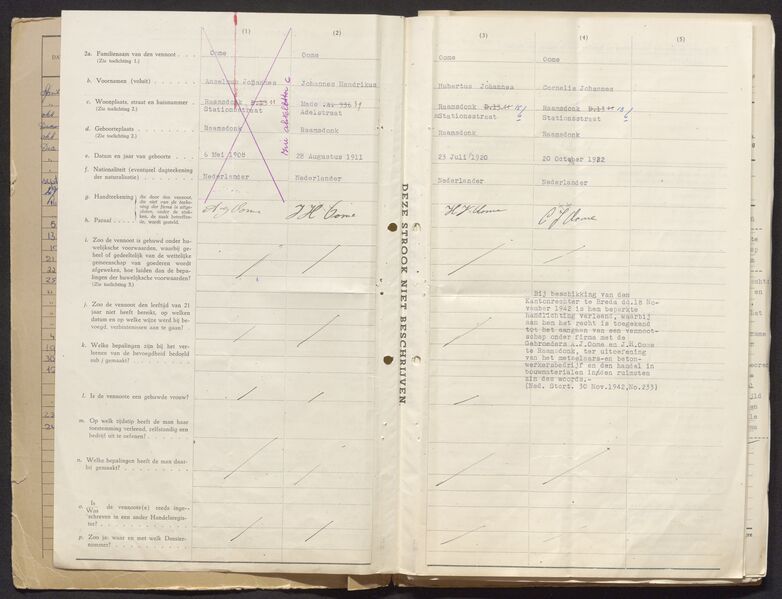 (1) (2)
2a. Familienaam van den vennoot
(Zie toelichting 1.)
Oome Oome
b. Voornamen (voluit)
Johannes Hendrikus
c. Woonplaats, straat en huisnummer
(Zie toelichting 2.)
Raamsdonk Made
Stationsstraat Adelstraat
d. Geboorteplaats
(Zie toelichting 2.)
Raamsdonk Raamsdonk
e. Datum en jaar van geboorte
6 Mei 1908 28 Augustus 1911
f. Nationaliteit (eventueel dagteekening
der naturalisatie)
Nederlander Nederlander
g. Handteekening
h. Paraaf
die door den vennoot,
die niet van de teeke-
ning der firma is uitge-
sloten, onder de stuk-
ken, de zaak betreffen-
de, wordt gesteld.
J H Oome
i. Zoo de vennoot is gehuwd onder hu-
welijksche voorwaarden, waarbij ge-
heel of gedeeltelijk van de wettelijke
gemeenschap van goederen wordt
afgeweken, hoe luiden dan de bepa-
lingen der huwelijksche voorwaarden?
(Zie toelichting 3.)
j. Zoo de vennoot den leeftijd van 21
jaar niet heeft bereikt, op welken
datum en op welke wijze werd hij be-
voegd, verbintenissen aan te gaan?
k. Welke bepalingen zijn bij het ver-
leenen van de bevoegdheid bedoeld
sub j gemaakt?
l. Is de vennoote een gehuwde vrouw?
m. Op welk tijdstip heeft de man haar
toestemming verleend, zelfstandig een
bedrijf uit te oefenen?
n. Welke bepalingen heeft de man daar-
bij gemaakt?
o. Is
Was de vennoot(e) reeds inge-
schreven in een ander Handelsregis-
ter?
p. Zoo ja: waar en met welk Dossier-
nummer?
DEZE STROOK NIET BESCHRIJVEN
(3) (4) (5)
Oome Oome
Hubertus Johannes Cornelis Johannes
Raamsdonk Raamsdonk
Stationsstraat Stationsstraat
Raamsdonk Raamsdonk
23 Juli 1920 20 October 1922
Nederlander Nederlander
H J Oome C J Oome
Bij beschikking van den
Kantonrechter te Breda dd.18 No-
vember 1942 is hen beperkte
handlichting verleend, waarbij
aan hen het recht is toegekend
tot het aangaan van een vennoot-
schap onder firma met de
Gebroeders A.J.Oome en J.H.Oome
te Raamsdonk, ter uitoefening
van het metselaars-en beton-
werkersbedrijf en den handel in
bouwmaterialen in den ruimsten
zin des woords.-
(Ned. Stort. 30 Nov.1942,No.233)